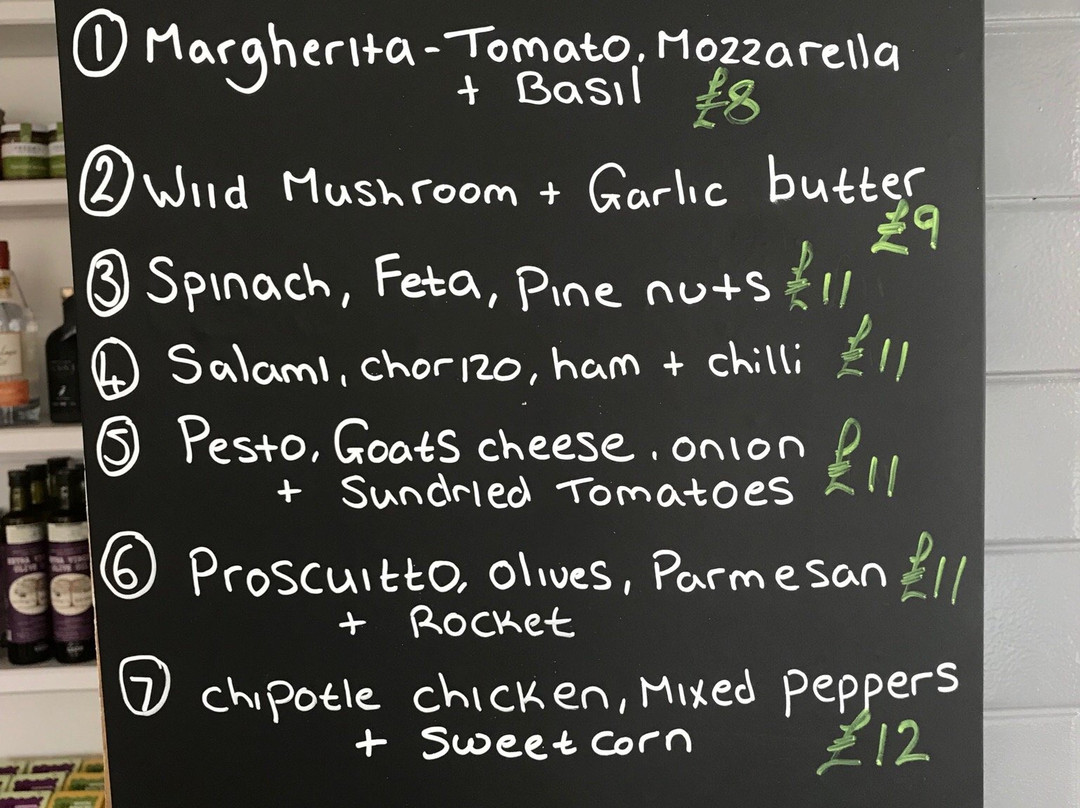 ① Margherita - Tomato, Mozzarella
+ Basil £8
② Wild Mushroom + Garlic butter
£9
③ Spinach, Feta, Pine nuts £11
④ Salami, chorizo, ham + chilli £11
⑤ Pesto, Goats cheese, onion £11
+ Sundried Tomatoes
⑥ Proscuitto, olives, Parmesan £11
+ Rocket
⑦ chipotle chicken, Mixed peppers
+ Sweetcorn £12